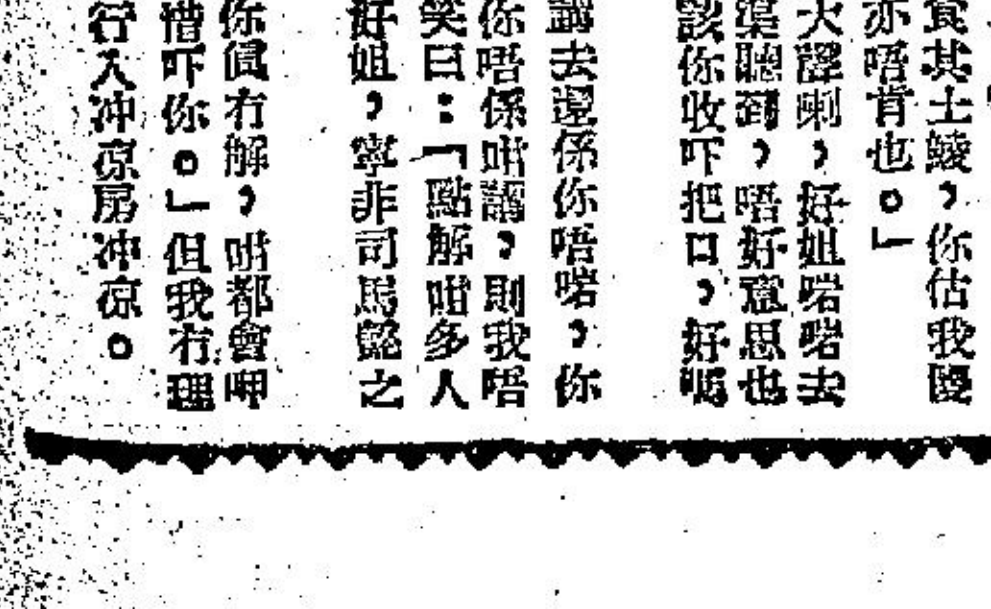 其士鮻,你估我
亦唔肯也。」
大聲喇,好姐啱啱去
渠聽到,唔好意思也
該你收吓把口,好嗎
講去邊係你唔啱,你
你唔係咁講,則我唔
笑曰:「點解咁多人
好姐,寧非司馬懿之
你眞冇解,咁都會呷
懵吓你。」但我冇理
行入冲凉房冲凉。